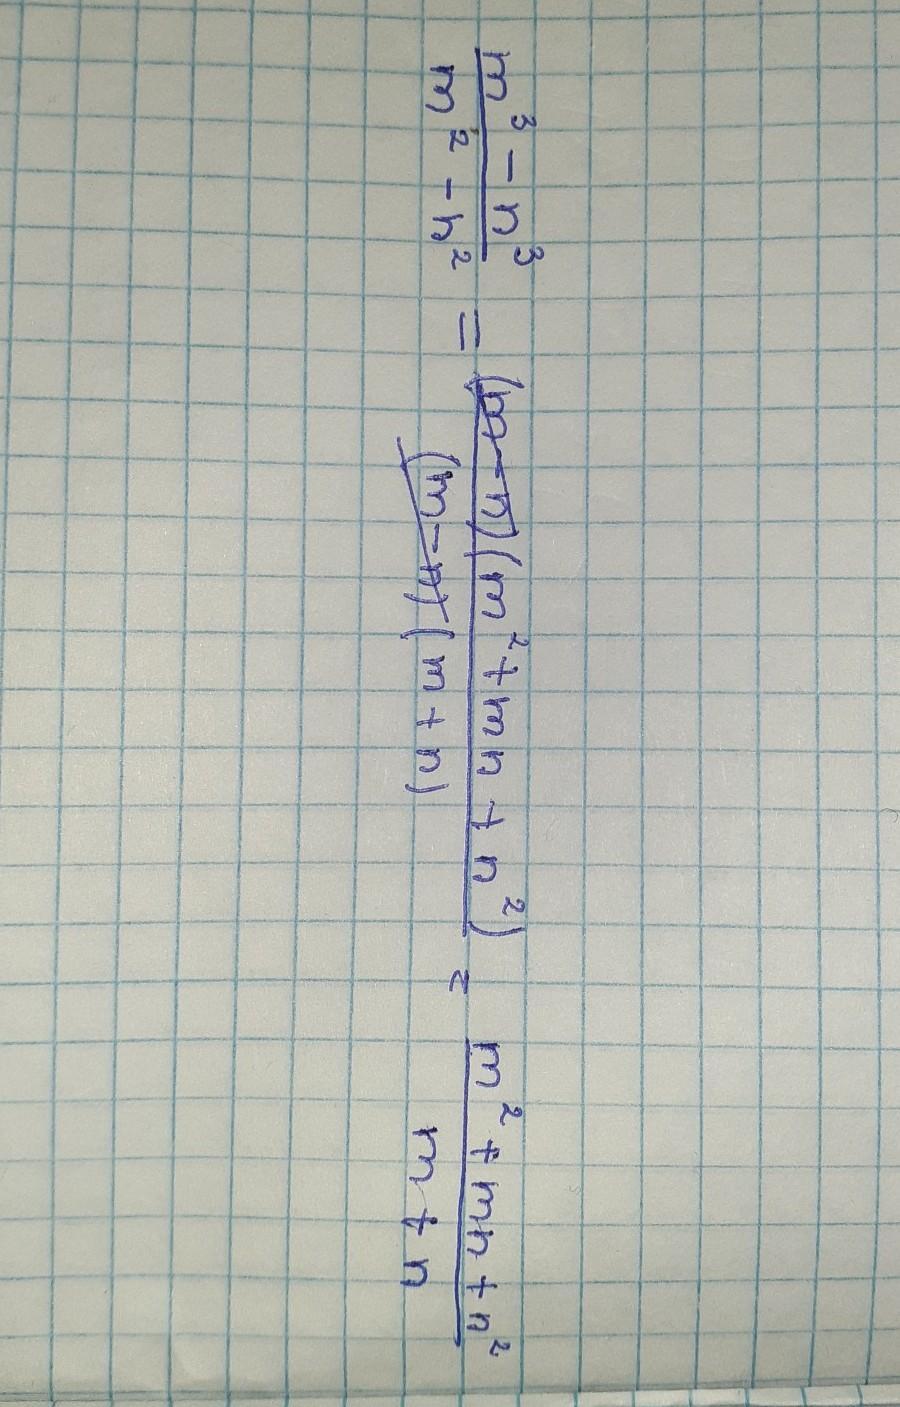 m³ - n³ / m² - n² = (m - n)(m² + mn + n²) / (m - n)(m + n) = m² + mn + n² / m + n